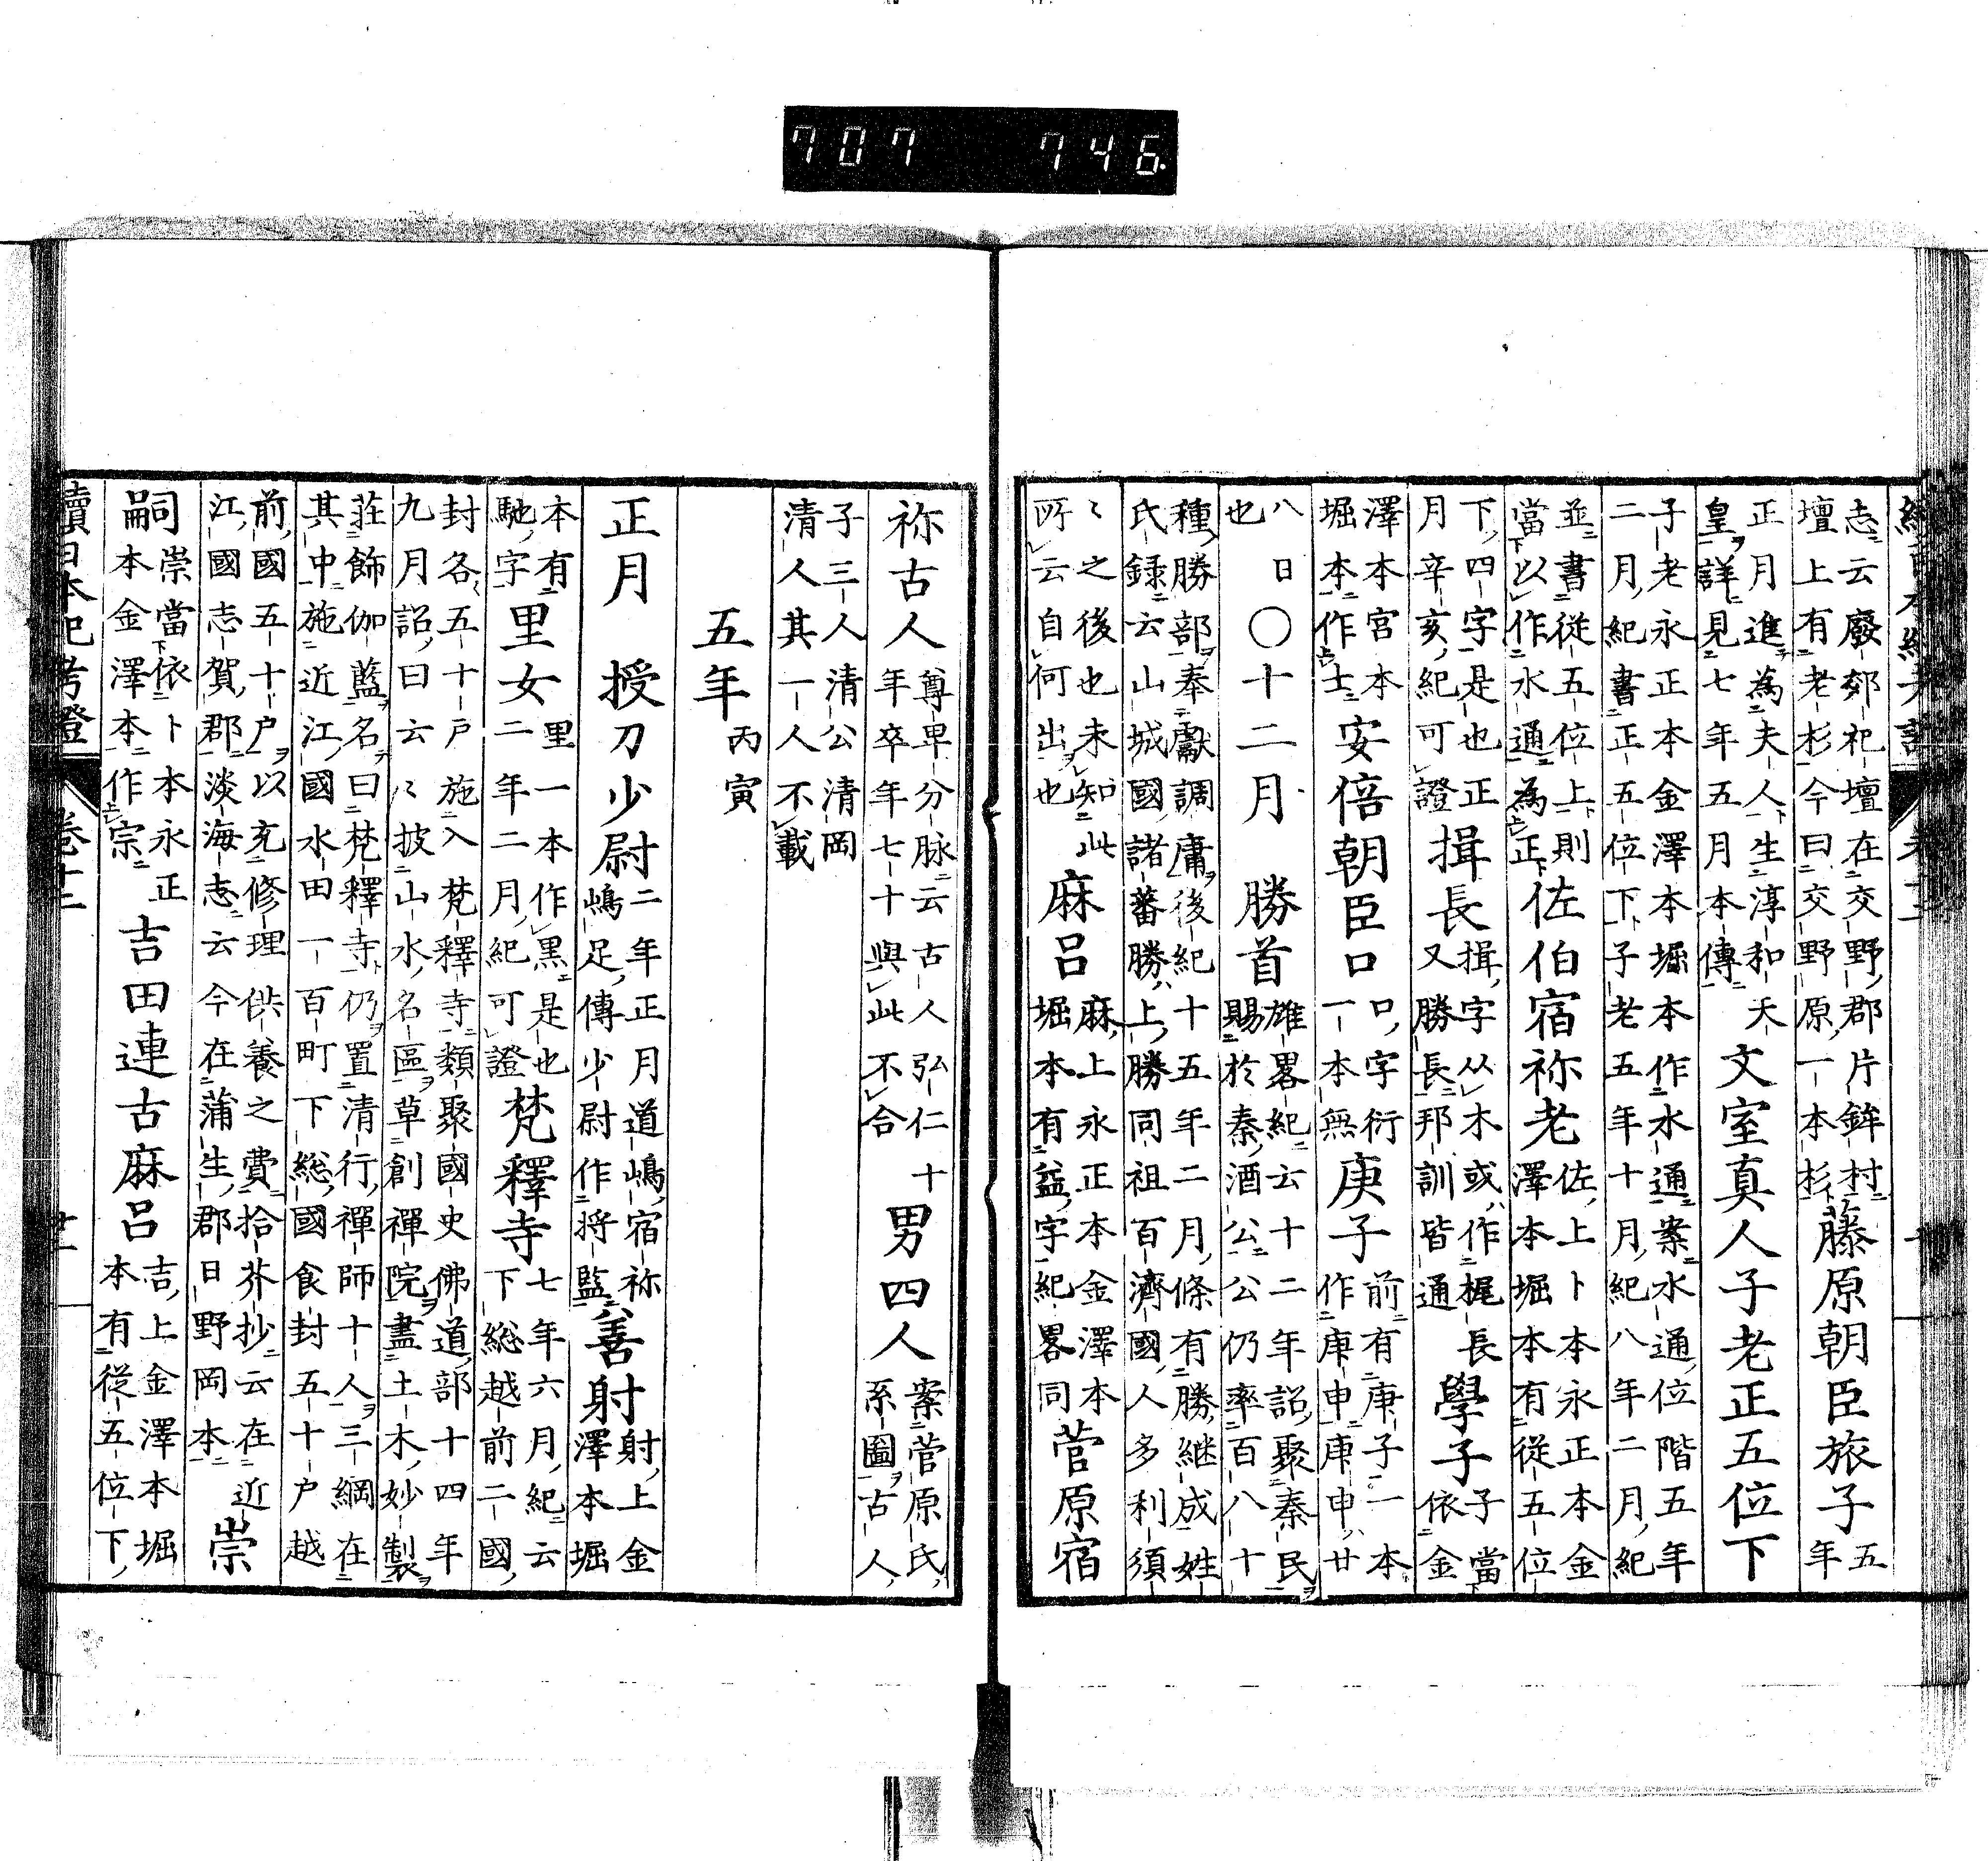 志云廢郊祀壇在交野郡片鉾村壇上有老杉今曰交野原一本杉藤原朝臣旅子五年
正月進為夫人生淳和天皇詳見七年五月本傳文室真人子老正五位下
子老永正本金澤本堀本作水通案水通位階五年二月紀書正五位下子老五年十月紀八年二月紀
並書從五位上則當以作水通為正佐伯宿祢老佐上卜本永正本金澤本堀本有從五位
下四字是也正月辛亥紀可證揖長揖字从木或作梶長又勝長邦訓皆通學子子當依金
澤本宮本堀本作士安倍朝臣口口字衍一本無庚子前有庚子一本作庚申庚申廿
八日也〇十二月 勝首雄畧紀云十二年詔聚秦民賜於秦酒公公仍率百八十
種勝部奉獻調庸後紀十五年二月條有勝継成姓氏録云山城國諸蕃勝上勝同祖百濟國人多利須
〻之後也未知此所云自何出也麻呂麻上永正本金澤本堀本有益字紀畧同菅原宿
祢古人尊卑分脉云古人弘仁十年卒年七十與此不合男四人案菅原氏系圖古人
子三人清公清岡清人其一人不載
五年丙寅
正月 授刀少尉二年正月道嶋宿祢嶋足傳少尉作将監善射射上金澤本堀
本有馳字里女里一本作黒是也二年二月紀可證梵釋寺七年六月紀云下総越前二國
封各五十戸施入梵釋寺類聚國史佛道部十四年九月詔曰云〻披山水名區草創禪院盡土木妙製
莊飾伽藍名曰梵釋寺仍置清行禪師十人三綱在其中施近江國水田一百町下総國食封五十戸越
前國五十戸以充修理供養之費拾芥抄云在近江國志賀郡淡海志云今在蒲生郡日野岡本崇
嗣崇當依卜本永正本金澤本作宗吉田連古麻呂吉上金澤本堀本有從五位下
續日本紀考證 卷十二
707 746